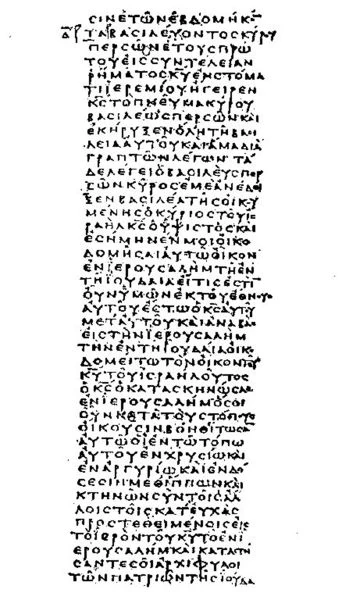 ϹΙΝΕΤΩΝΕΒΔΟΜΗΚΟ̅
ΤΑΒΑϹΙΛΕΥΟΝΤΟϹΚΥΡΟΥ
ΠΕΡϹΩΝΕΤΟΥϹΠΡΩ
ΤΟΥΕΙϹϹΥΝΤΕΛΕΙΑΝ
ΡΗΜΑΤΟϹΚ̅Υ̅ΕΝϹΤΟΜΑ
ΤΙΙΕΡΕΜΙΟΥΗΓΕΙΡΕΝ
Κ̅Ϲ̅ΤΟΠΝΕΥΜΑΚΥΡΟΥ
ΒΑϹΙΛΕΩϹΠΕΡϹΩΝΚΑΙ
ΕΚΗΡΥΞΕΝΟΛΗΤΗΒΑϹΙ
ΛΕΙΑΑΥΤΟΥΚΑΙΑΜΑΔΙΑ
ΓΡΑΠΤΩΝΛΕΓΩΝΤΑ
ΔΕΛΕΓΕΙΟΒΑϹΙΛΕΥϹΠΕΡ
ϹΩΝΚΥΡΟϹΕΜΕΑΝΕΔΕΙ
ΞΕΝΒΑϹΙΛΕΑΤΗϹΟΙΚΟΥ
ΜΕΝΗϹΟΚΥΡΙΟϹΤΟΥΙϹ
ΡΑΗΛΚ̅Ϲ̅ΟΥΨΙϹΤΟϹΚΑΙ
ΕϹΗΜΗΝΕΝΜΟΙΟΙΚΟ
ΔΟΜΗϹΑΙΑΥΤΩΟΙΚΟΝ
ΕΝΙΕΡΟΥϹΑΛΗΜΤΗΕΝ
ΤΗΙΟΥΔΑΙΑΕΙΤΙϹΕϹΤΙ
ΟΥΝΥΜΩΝΕΚΤΟΥΕΘΝΟΥϹ
ΑΥΤΟΥΕϹΤΩΟΚ̅Ϲ̅ΑΥΤΟΥ
ΜΕΤΑΥΤΟΥΚΑΙΑΝΑΒΑϹ
ΕΙϹΤΗΝΙΕΡΟΥϹΑΛΗΜ
ΤΗΝΕΝΤΗΙΟΥΔΑΙΑΟΙΚΟ
ΔΟΜΕΙΤΩΤΟΝΟΙΚΟΝΤΟΥ
Κ̅Υ̅ΤΟΥΙϹΡΑΗΛΟΥΤΟϹ
ΟΚ̅Ϲ̅ΟΚΑΤΑϹΚΗΝΩϹΑϹ
ΕΝΙΕΡΟΥϹΑΛΗΜΟϹΟΙ
ΟΥΝΚΑΤΑΤΟΥϹΤΟΠΟΥϹ
ΟΙΚΟΥϹΙΝΒΟΗΘΕΙΤΩϹΑΝ
ΑΥΤΩΟΙΕΝΤΩΤΟΠΩ
ΑΥΤΟΥΕΝΧΡΥϹΙΩΚΑΙ
ΕΝΑΡΓΥΡΙΩΚΑΙΕΝΔΟ
ϹΕϹΙΝΜΕΘΙΠΠΩΝΚΑΙ
ΚΤΗΝΩΝϹΥΝΤΟΙϹΑΛ
ΛΟΙϹΤΟΙϹΚΑΤΕΥΧΑϹ
ΠΡΟϹΤΕΘΕΙΜΕΝΟΙϹΕΙϹ
ΤΟΙΕΡΟΝΤΟΥΚ̅Υ̅ΤΟΕΝΙ
ΕΡΟΥϹΑΛΗΜΚΑΙΚΑΤΑϹΤΗ
ϹΑΝΤΕϹΟΙΑΡΧΙΦΥΛΟΙ
ΤΩΝΠΑΤΡΙΩΝΤΗϹΙΟΥΔΑ